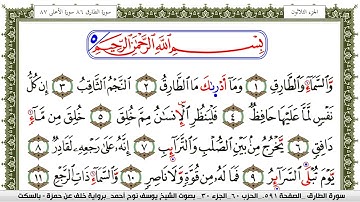 الجزء الثلاثون
سورة الطارق ٨٦ سورة الأعلى ٨٧
بِسْمِ اللَّهِ الرَّحْمَٰنِ الرَّحِيمِ ٥
وَالسَّمَاءِ وَالطَّارِقِ ١ وَمَا أَدْرَىٰكَ مَا الطَّارِقُ ٢ النَّجْمُ الثَّاقِبُ ٣ إِن كُلُّ
نَفْسٍ لَّمَا عَلَيْهَا حَافِظٌ ٤ فَلْيَنظُرِ الْإِنسَٰنُ مِمَّ خُلِقَ ٥ خُلِقَ مِن مَّاءٍ
دَافِقٍ ٦ يَخْرُجُ مِن بَيْنِ الصُّلْبِ وَالتَّرَائِبِ ٧ إِنَّهُ عَلَىٰ رَجْعِهِ لَقَادِرٌ ٨
يَوْمَ تُبْلَى السَّرَائِرُ ٩ فَمَا لَهُ مِن قُوَّةٍ وَلَا نَاصِرٍ ١٠ وَالسَّمَاءِ ذَاتِ الرَّجْعِ ١١
سورة الطارق _ الصفحة ٥٩١ _ الحزب ٦٠ _ الجزء ٣٠ _ بصوت الشيخ يوسف نوح أحمد _ برواية خلف عن حمزة - بالسكت